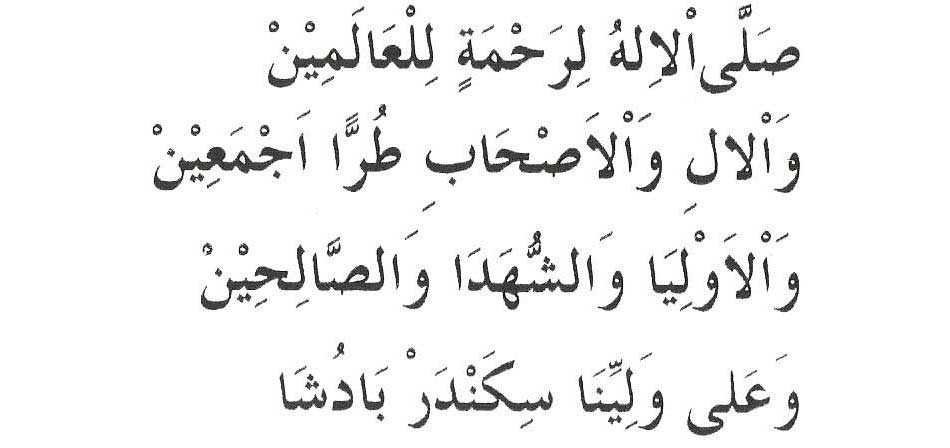 صَلَّى اْلاِلهُ لِرَحْمَةٍ لِلْعَالَمِيْنْ
وَاْلالِ وَاْلاَصْحَابِ طُرًّا اَجْمَعِيْنْ
وَاْلاَوْلِيَا وَالشُّهَدَا وَالصَّالِحِيْنْ
وَعَلى وَلِيِّنَا سِكَنْدَرْ بَادُشَا